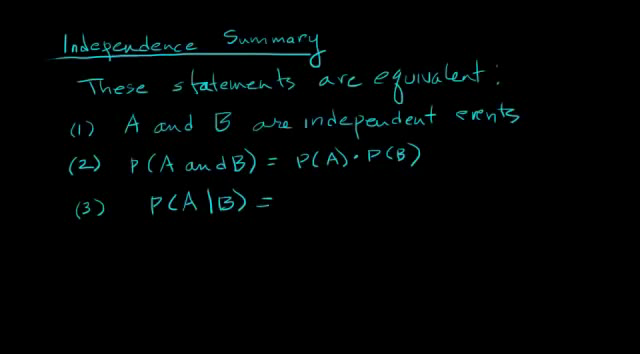 Independence Summary
These statements are equivalent:
(1) A and B are independent events
(2) P(A and B) = P(A) • P(B)
(3) P(A|B) =